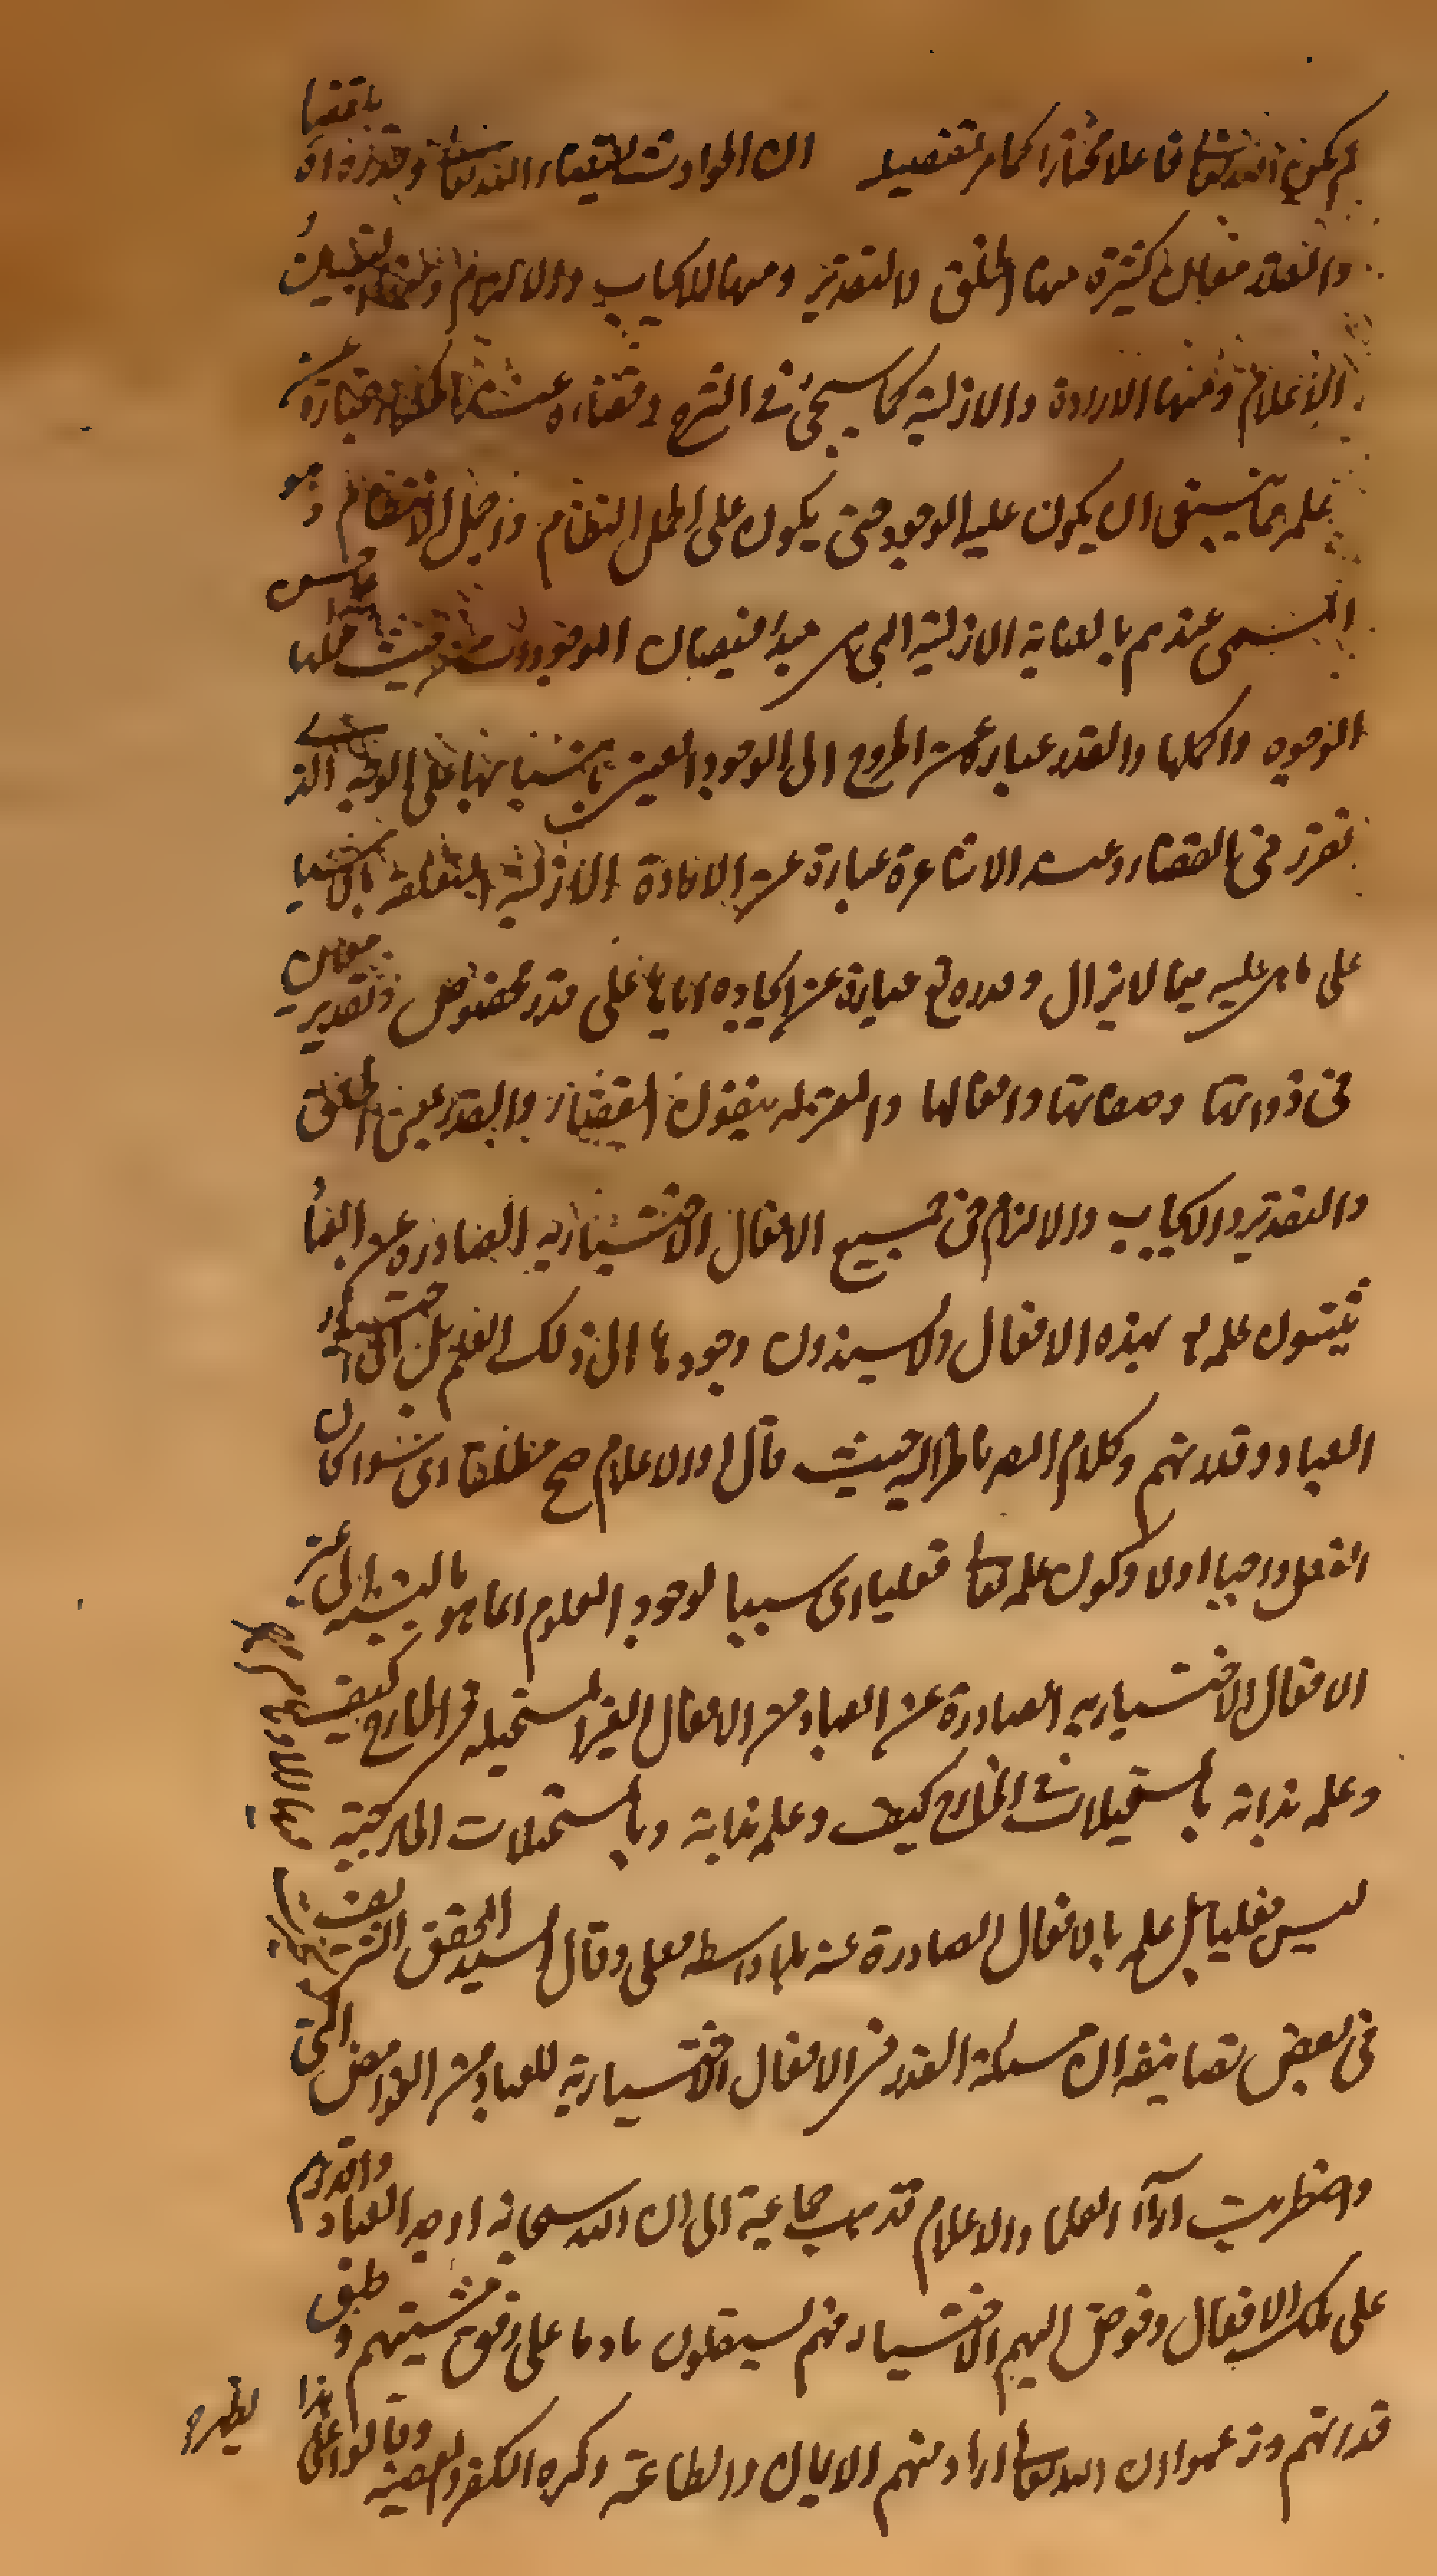 لم يكن الله تعالى فاعلا مختارا كما مر تفصيله ان الحوادث بقضاء الله تعالى وقدره
والقدر معان كثيرة منها الخلق والتقدير ومنها الايجاب والالزام ومنها التبيين
الاعلام ومنها الارادة والازلية كما سيجئ في الشرح وقضاؤه عند الحكماء عبارة عن
علمه بما ينبغى ان يكون عليه الوجود حتى يكون على اكمل النظام واجمل الانتظام وهو
المسمى عندهم بالعناية الازلية التي هي مبدا فيضان الموجودات من حيث جملتها على احسن
الوجوه واكملها والقدر عبارة عن الخروج الى الوجود العيني باسبابها على الوجه الذي
تقرر فى القضاء وعند الاشاعرة عبارة عن الارادة الازلية المتعلقة بالاشياء
على ما هي عليه فيما لا يزال وقدره تع عبارة عن ايجاده اياها على قدر مخصوص وتقدير معين
فى ذواتها وصفاتها وافعالها والمعتزله ينفون القضاء والقدر بمعنى الخلق
والتقدير والايجاب والالزام فى جميع الافعال الاختيارية الصادرة عن العباد
يثبتون علمه تع بهذه الافعال ولا يسندون وجودها الى ذلك العلم بل الى اختيار
العباد وقدرتهم وكلام المص ناظر اليه حيث قال والاعلام صح مطلقا اى سواء كان
الفعل واجبا اولا وكون علمه تعالى فعليا اى سببا لوجود المعلوم انما هو بالنسبة الى غير
الافعال الاختيارية الصادرة عن العباد من الافعال الغير المستحيلة في الخارج كيف
وعلمه بذاته بالمستحيلات في الخارج كيف وعلمه بذاته وبالمستحيلات الخارجية
ليس فعليا بل علمه بالافعال الصادرة عنه بلا واسطه فعلى وقال السيد المحقق الشريف
فى بعض تصانيفه ان مسئلة القدر في الافعال الاختيارية للعباد من الغوامض التى
واضطربت اراآ العلما والاعلام فذهب جماعة الى ان الله سبحانه اوجد العباد واقدرهم
على تلك الافعال وفوض اليهم الاختيار فهم يستقلون بايجادها على وفق مشيتهم وطبق
قدرتهم وزعموا ان الله تعالى اراد منهم الايمان والطاعة وكره الكفر والمعصية وقالوا على هذا
يظهر